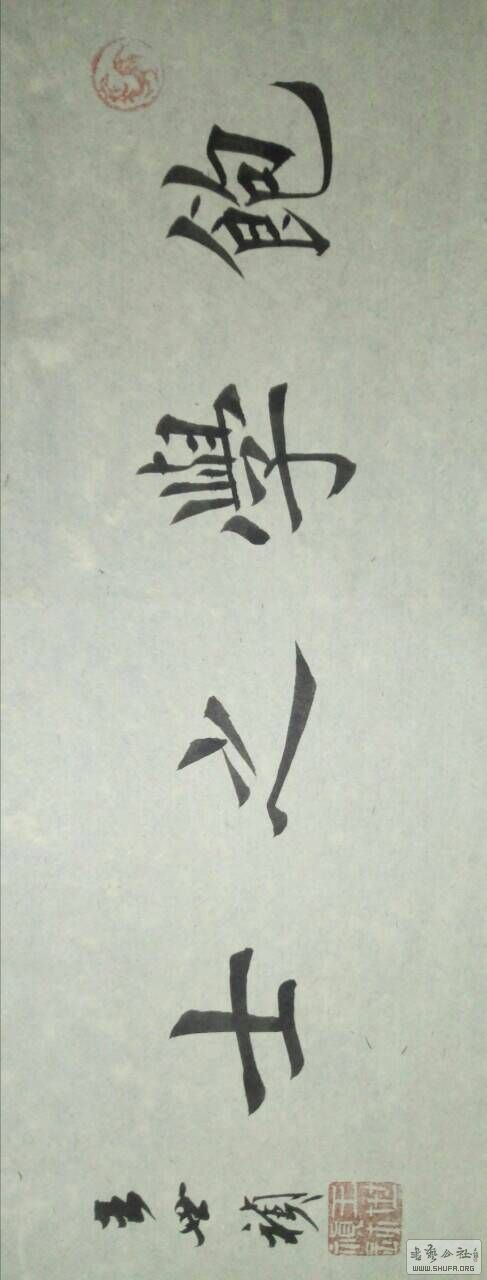 飽學之士
王世
书艺公社
WWW.SHUFA.ORG